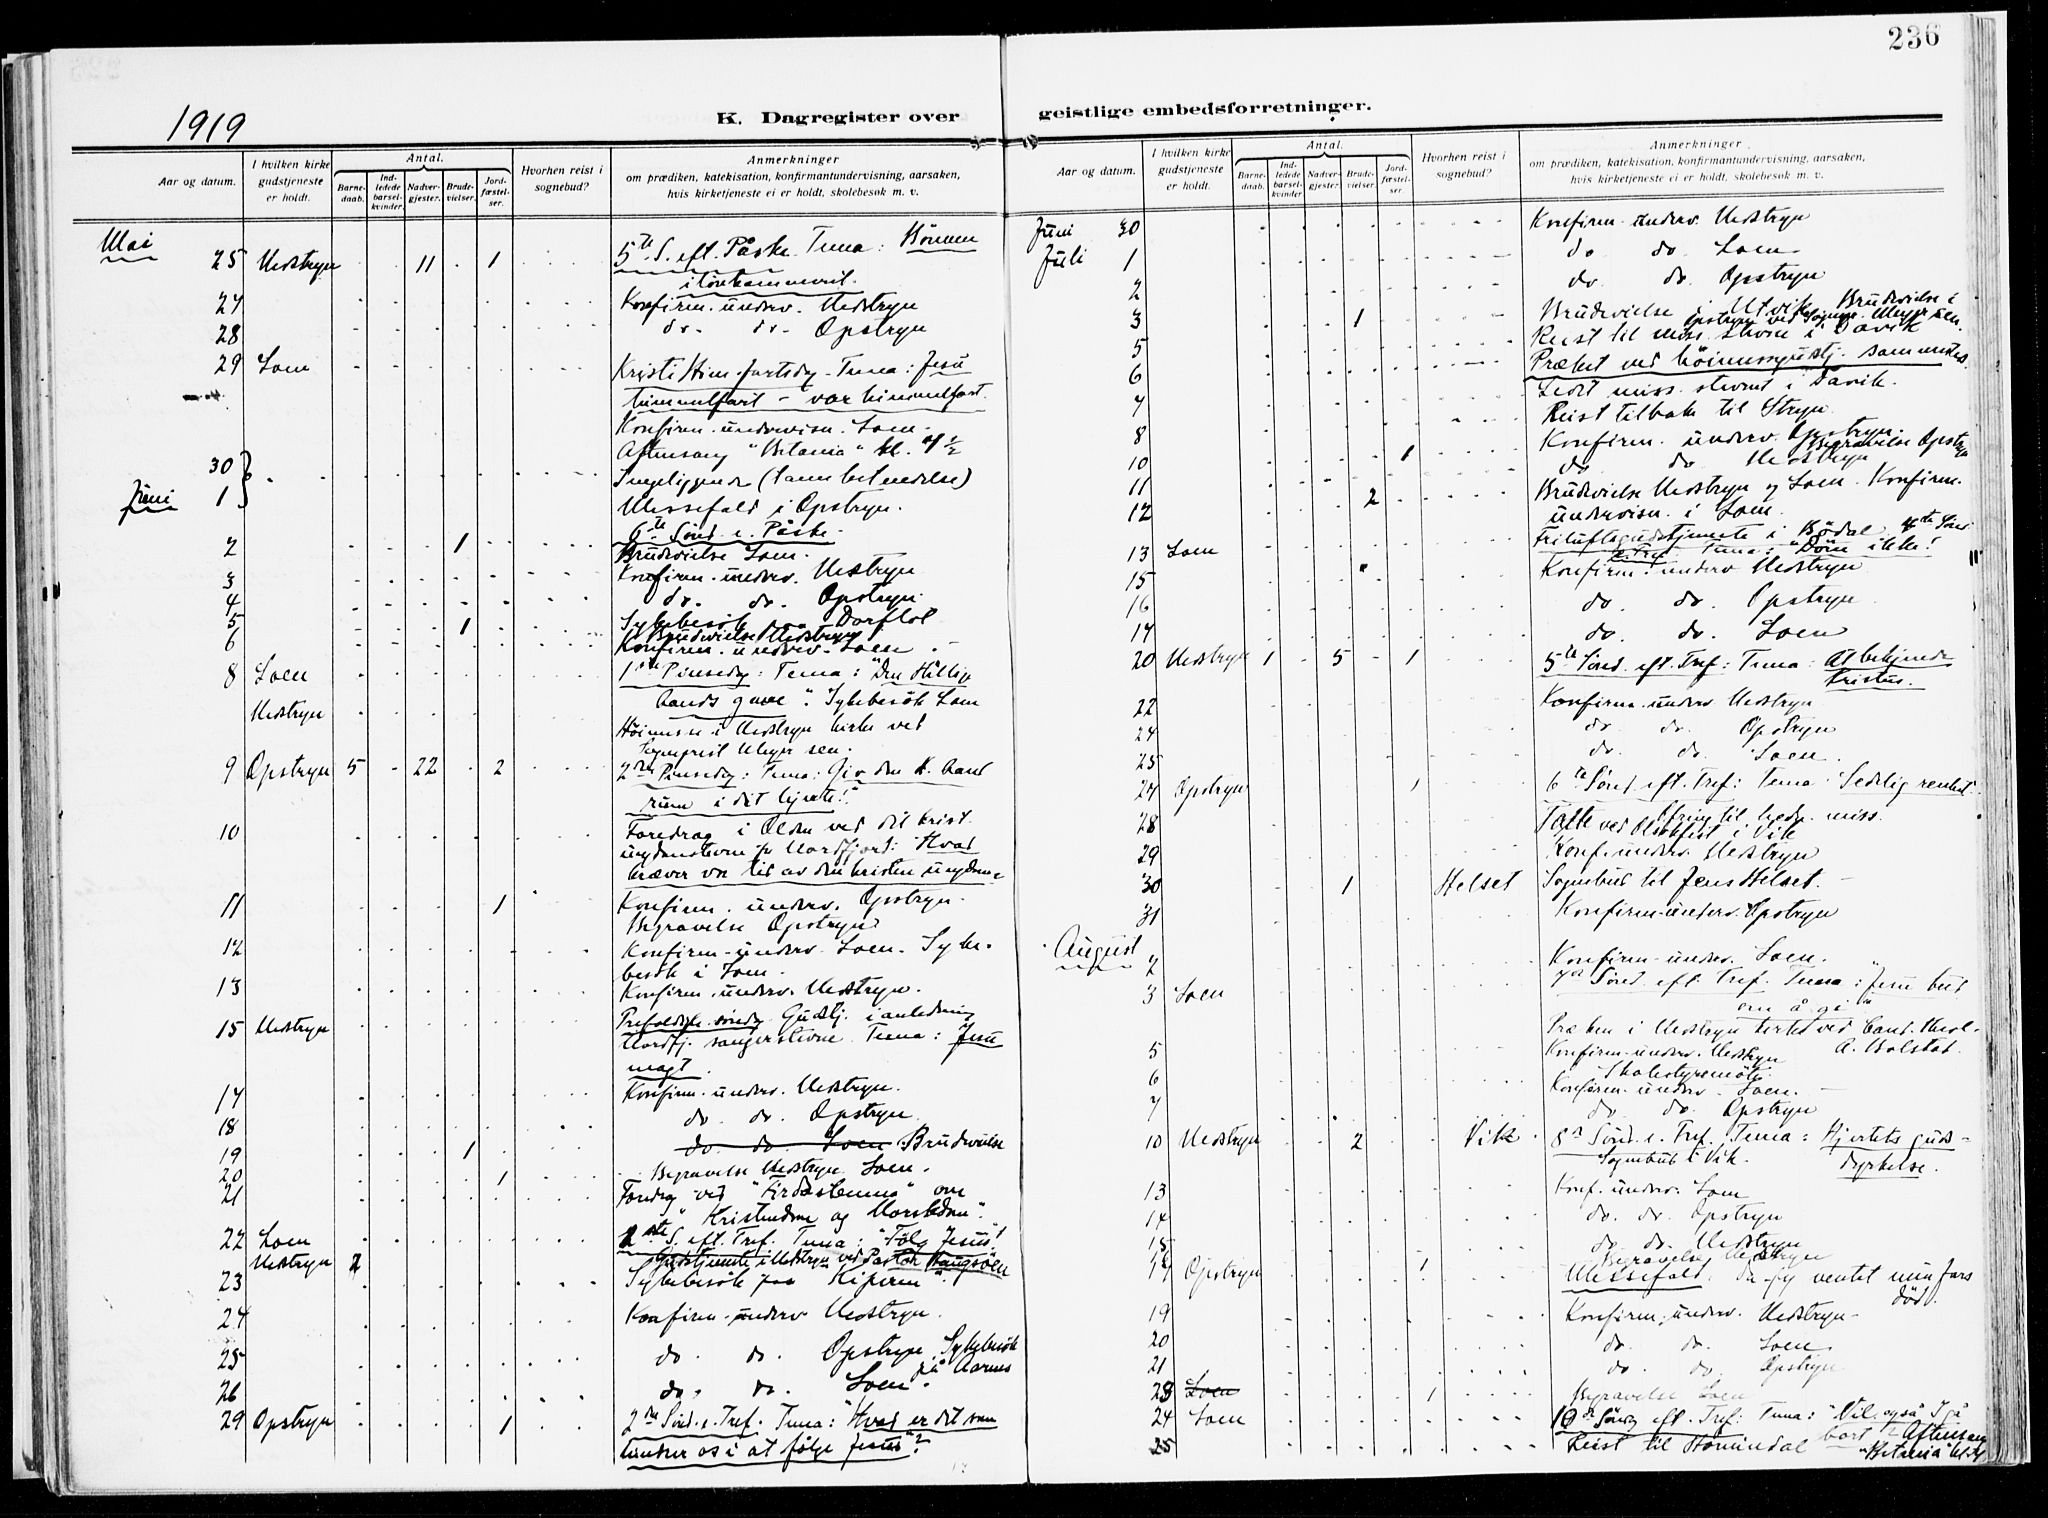 236
1919
K. Dagregister over geistlige embedsforretninger.
Aar og datum. I hvilken kirke gudstjeneste er holdt. Antal. Barnedaab. Indledede barselkvinder. Nadvergjester. Brudevielser. Jordfæstelser. Hvorhen reist i sognebud? Anmerkninger om prædiken, katekisation, konfirmantundervisning, aarsaken, hvis kirketjeneste ei er holdt, skolebesøk m. v.
Mai
25 Nedstryn 11 1 5te S. eft. Påske. Tema: Bönnen
i lönkammeret.
27 Konfirm. underv. Nedstryn
28 do. do. Opstryn
29 Loen Kristi Him.fartsdag. Tema: Jesu
himmelfart - vor himmelfart.
Konfirm. undervisn. Loen.
Aftensang "Betania" kl. 7 ½
30 Sengeliggende (tannbetendelse)
Juni 1 Messefald i Opstryn.
6te Sönd. e. Påske.
2 1 Brudevielse Loen.
3 Konfirm. underv. Nedstryn
4 do. do. Opstryn.
5 1 Sykebesök
Brudevielse Nedstryn
6 Konfirm. underv. Loen
8 Loen 1ste Pinsedag: Tema: "Den Hellige
Aands gave". Sykebesök Loen
Nedstryn Höimesse i Nedstryn kirke ved
Sogneprest Meyer sen.
9 Opstryn 5 22 2 2den Pinsedag: Tema: Giv den H. Aand
rum i dit hjerte!"
10 Foredrag i Olden ved det krist.
ungdomstevne for Nordfjord: Hvad
kræver vor tid av den kristen ungdom?
11 1 Konfirm. underv. Opstryn.
Begravelse Opstryn
12 Konfirm. underv. Loen. Syke-
besök i Loen.
13 Konfirm. underv. Nedstryn.
15 Nedstryn Trefoldigh. söndag Gudstj. i anledning
Nordfj. sangerstevne. Tema: Jesu
magt.
17 Konfirm. underv. Nedstryn.
18 do. do. Opstryn
19 1 do do. Loen Brudevielse
20 1 Begravelse Nedstryn. Loen.
21 Foredrag ved "Firdastemna" om
"Kristendom og Norskdom".
22 Loen 1ste S. eft. Tref. Tema: "Fölg Jesus!
Nedstryn 2 Gudstjeneste i Nedstryn ved Pastor
23 Sykebesök paa
24 Konfirm. underv. Nedstryn.
25 do. do. Opstryn. Sykebesök
på Aarnes
26 do. do. Loen.
29 Opstryn 1 2den Sönd. e. Tref. Tema: "Hvad er det som
hindrer os i at følge Jesus"?
Aar og datum. I hvilken kirke gudstjeneste er holdt. Antal. Barnedaab. Indledede barselkvinder. Nadvergjester. Brudevielser. Jordfæstelser. Hvorhen reist i sognebud? Anmerkninger om prædiken, katekisation, konfirmantundervisning, aarsaken, hvis kirketjeneste ei er holdt, skolebesøk m. v.
Juni 30 Konfirm. underv. Nedstryn
Juli 1 do. do. Loen
2 do. do. Opstryn
3 1 Brudevielse i Utvik. Brudevielse i
Opstryn ved Sognepr. Meyer sen.
5 Reist til miss. stevne i Davik
6 Præket ved höimessegustj. sammesteds.
7 Ledet miss. stevnet i Davik.
Reist tilbake til Stryn.
8 1 Konfirm. underv. Opstryn.
Begravelse Opstryn
10 do do. Nedstryn
11 2 Brudevielse Nedstryn og Loen. Konfirm.
12 undervisn. i Loen.
13 Loen Friluftsgudstjeneste i Bödal 4de Sönd
e. Tref. Tema: "Döm ikke!
15 Konfirm. underv Nedstryn
16 do. do. Opstryn
17 do. do. Loen
20 Nedstryn 1 5 1 5te Sönd. eft. Tref: Tema: At bekjende
Kristus.
22 Konfirm. underv Nedstryn
24 do. do. Opstryn
25 do. do. Loen.
27 Opstryn 1 6te Sönd. eft. Tref: Tema: Sedelig renhet.
Ofring til hedn. miss.
28 Talte ved Olsokfest i Vik
29 Konf. underv. Nedstryn
30 1 Helset Sognebud til Jens Helset.
31 Konfirm. underv. Opstryn
August
2 Konfirm. underv. Loen.
3 Loen 7de Sönd. eft. Tref. Tema: "Jesu bud
om å gi"
Præken i Nedstryn kirke ved Cand. theol.
A. Bolstad.
5 Konfirm. underv. Nedstryn
Skolestyremöte
6 Konfirm. underv. Loen.
7 do. do. Opstryn
10 Nedstryn 2 Vik 8de Sönd. e. Tref. Tema: Hjertets guds-
dyrkelse.
Sognebud i Vik.
13 Konf. underv. Loen
14 do. do. Opstryn
15 do do. Nedstryn
Begravelse Nedstryn
17 Opstryn 1 Messefald. Da jeg ventet min fars
död.
19 Konfirm. underv. Nedstryn
20 do. do. Loen
21 do. do. Opstryn
23 Loen 1 Begravelse Loen
24 Loen 10de Sönd eft. Tref: Tema: "Vil også I gå
bort"? Aftensang
25 Reist til Hornindal "Betania"